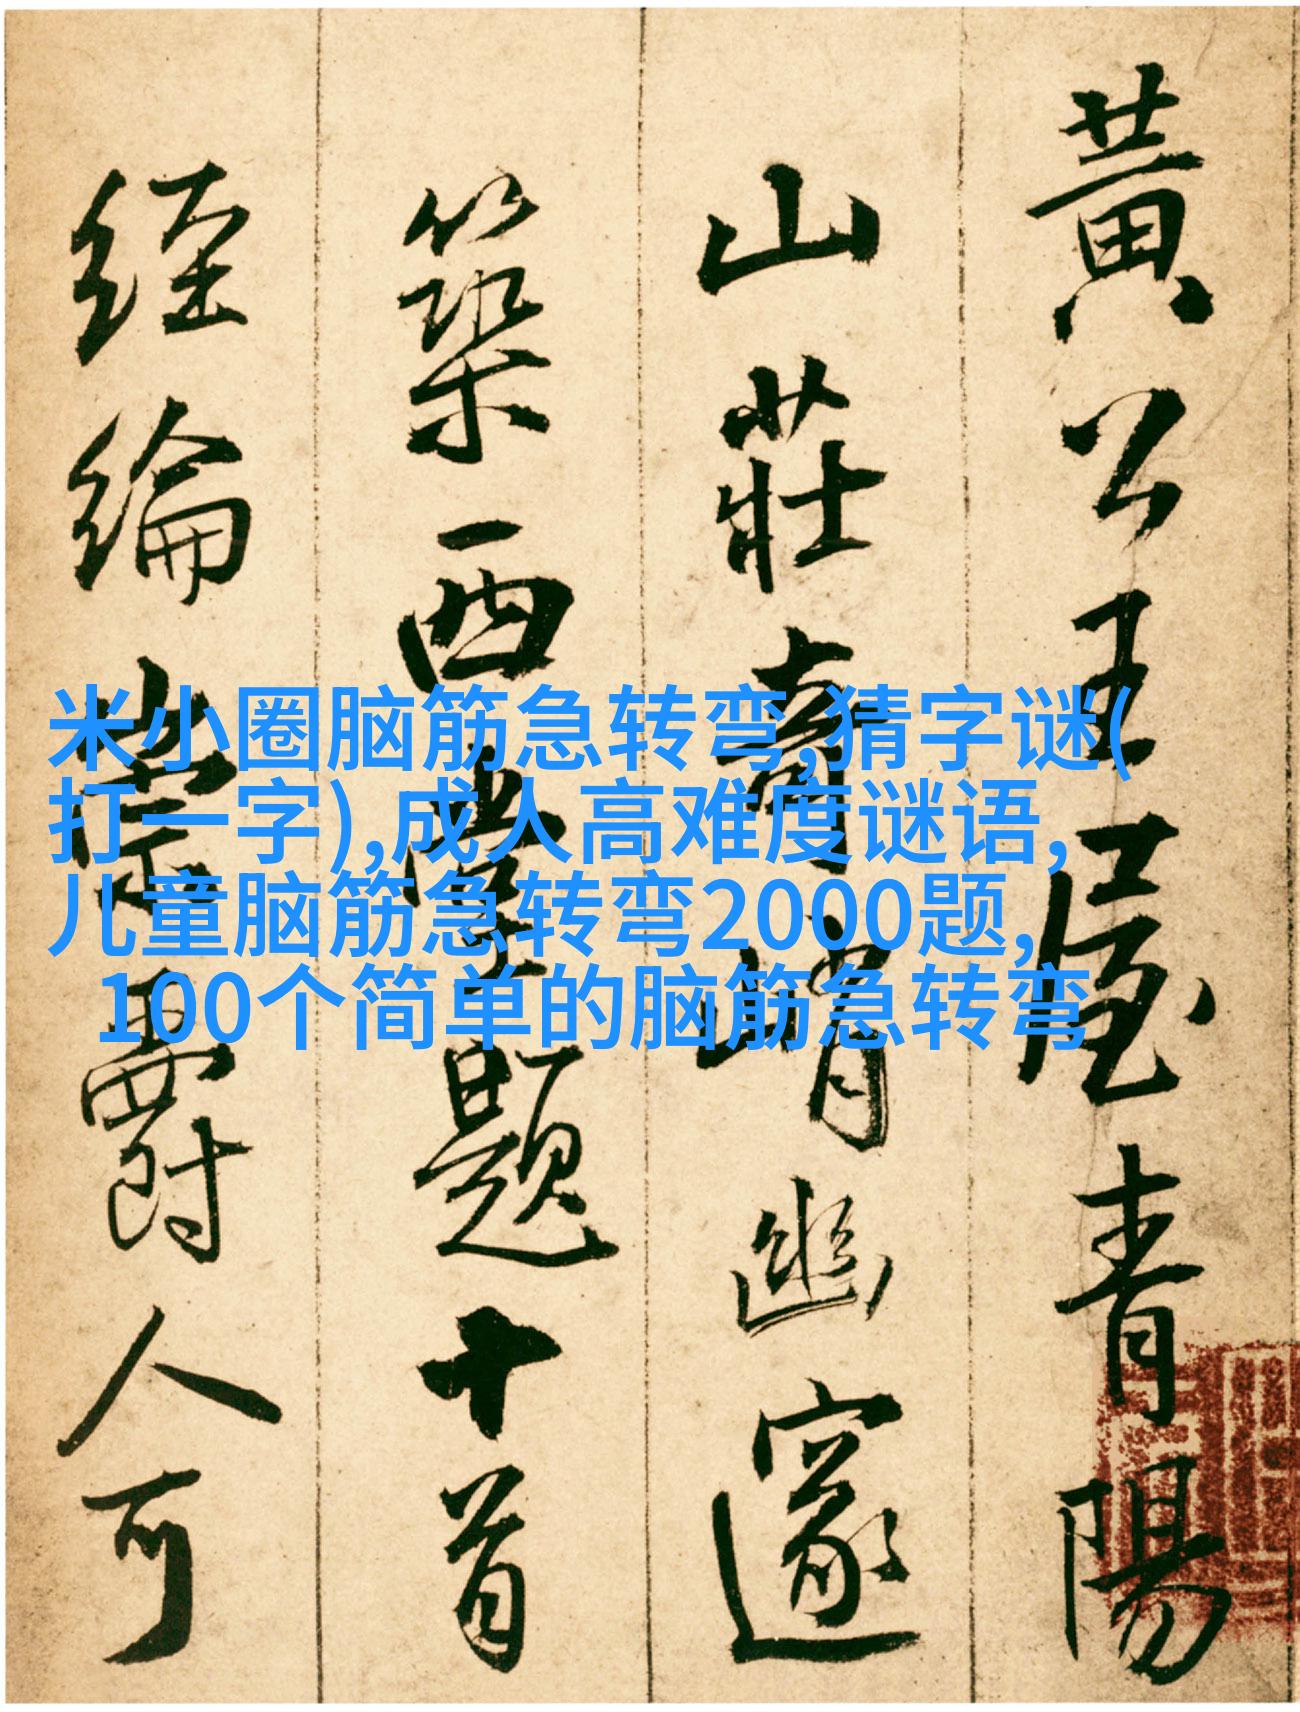 黃公王屋青陽
山莊奇峭幽邃
築西堂題十首
經綸崇爵人可
米小圈脑筋急转弯,猜字谜(
打一字),成人高难度谜语,
儿童脑筋急转弯2000题,
100个简单的脑筋急转弯